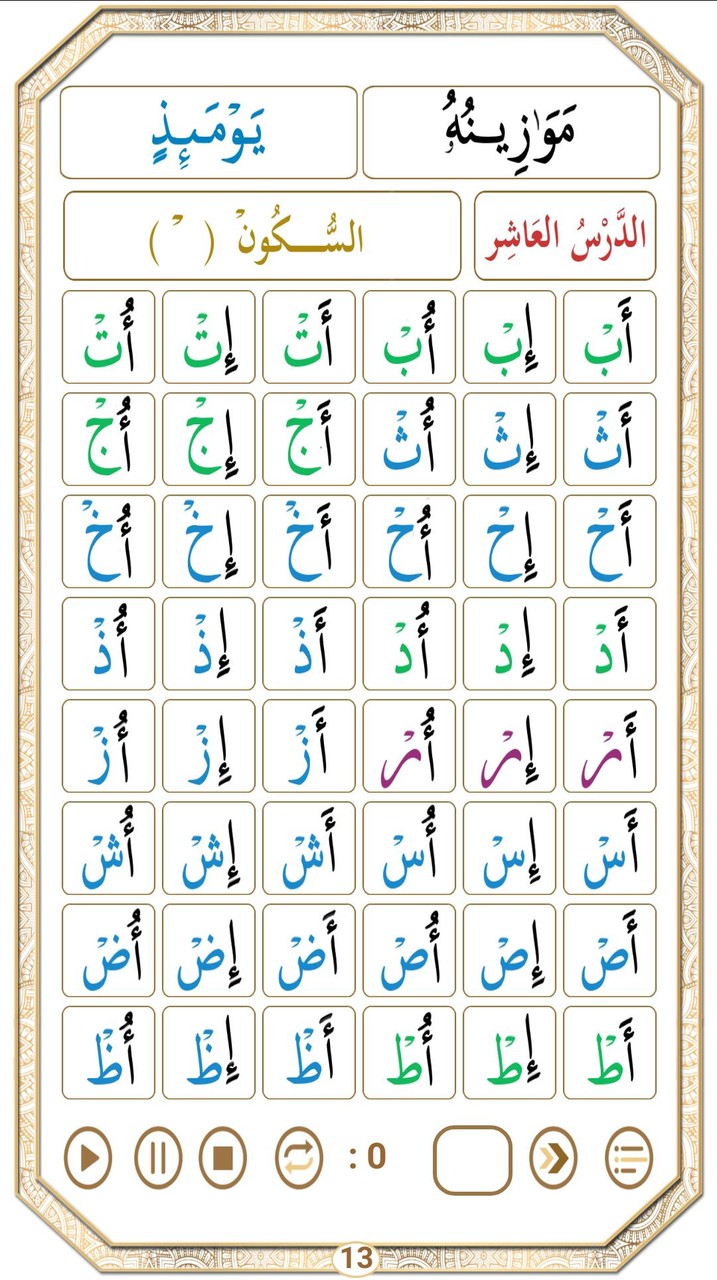 مَوَٰزِينُهُۥ يَوْمَئِذٍ
الدَّرْسُ العَاشِر السُّـــكُونْ ( ْ )
أَبْ إِبْ أُبْ أَتْ إِتْ أُتْ
أَثْ إِثْ أُثْ أَجْ إِجْ أُجْ
أَحْ إِحْ أُحْ أَخْ إِخْ أُخْ
أَدْ إِدْ أُدْ أَذْ إِذْ أُذْ
أَرْ إِرْ أُرْ أَزْ إِزْ أُزْ
أَسْ إِسْ أُسْ أَشْ إِشْ أُشْ
أَصْ إِصْ أُصْ أَضْ إِضْ أُضْ
أَطْ إِطْ أُطْ أَظْ إِظْ أُظْ
: 0
13